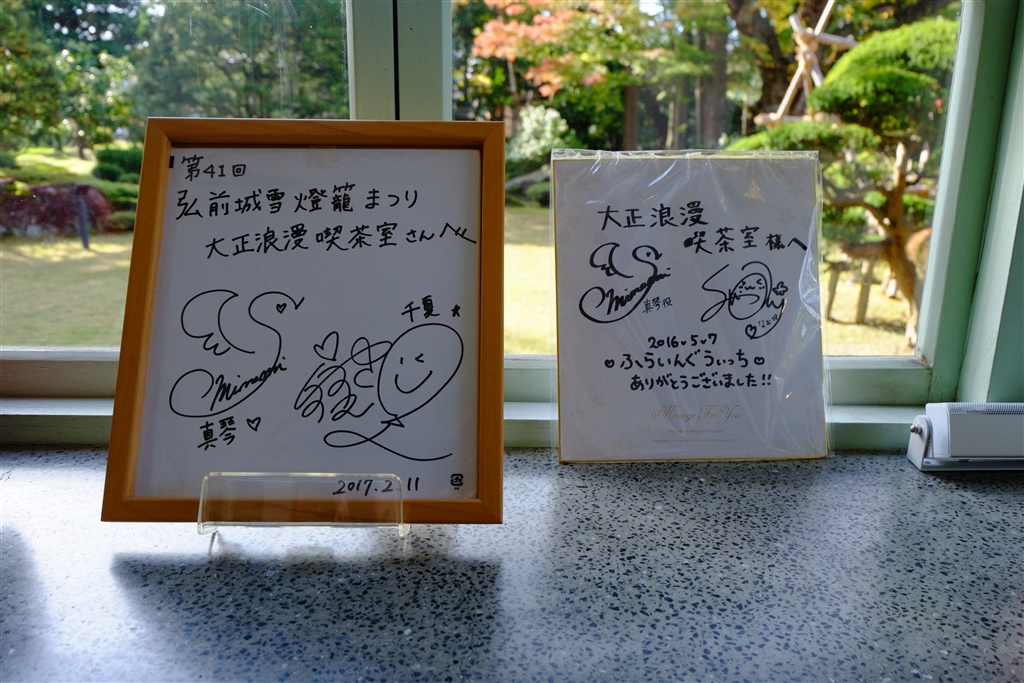 第41回
弘前城雪燈籠まつり
大正浪漫喫茶室さんへ
千夏
Minagshi
真琴
2017.2.11
大正浪漫
喫茶室様へ
真琴役
2016.5.7
ふらいんぐうぃっち
ありがとうございました!!
Message For You